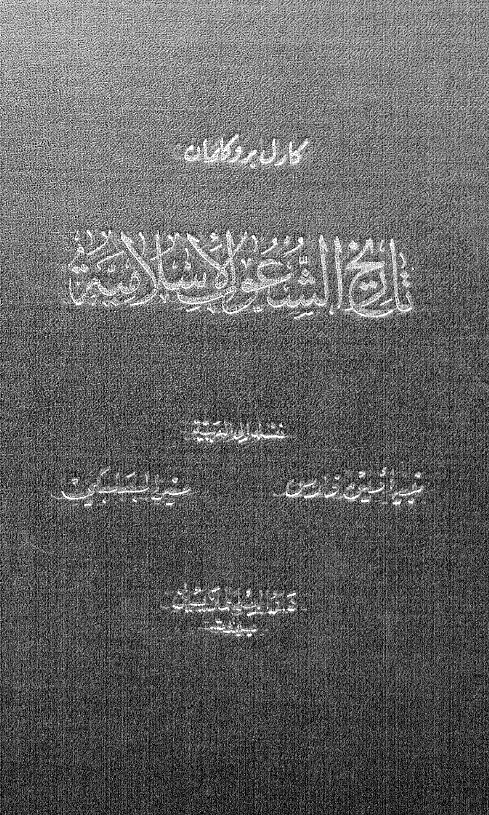 كارل بروكلمان
تاريخ الشعوب الإسلامية
نقله إلى العربية
نبيه أمين فارس
منير البعلبكي
دار العلم للملايين
بيروت